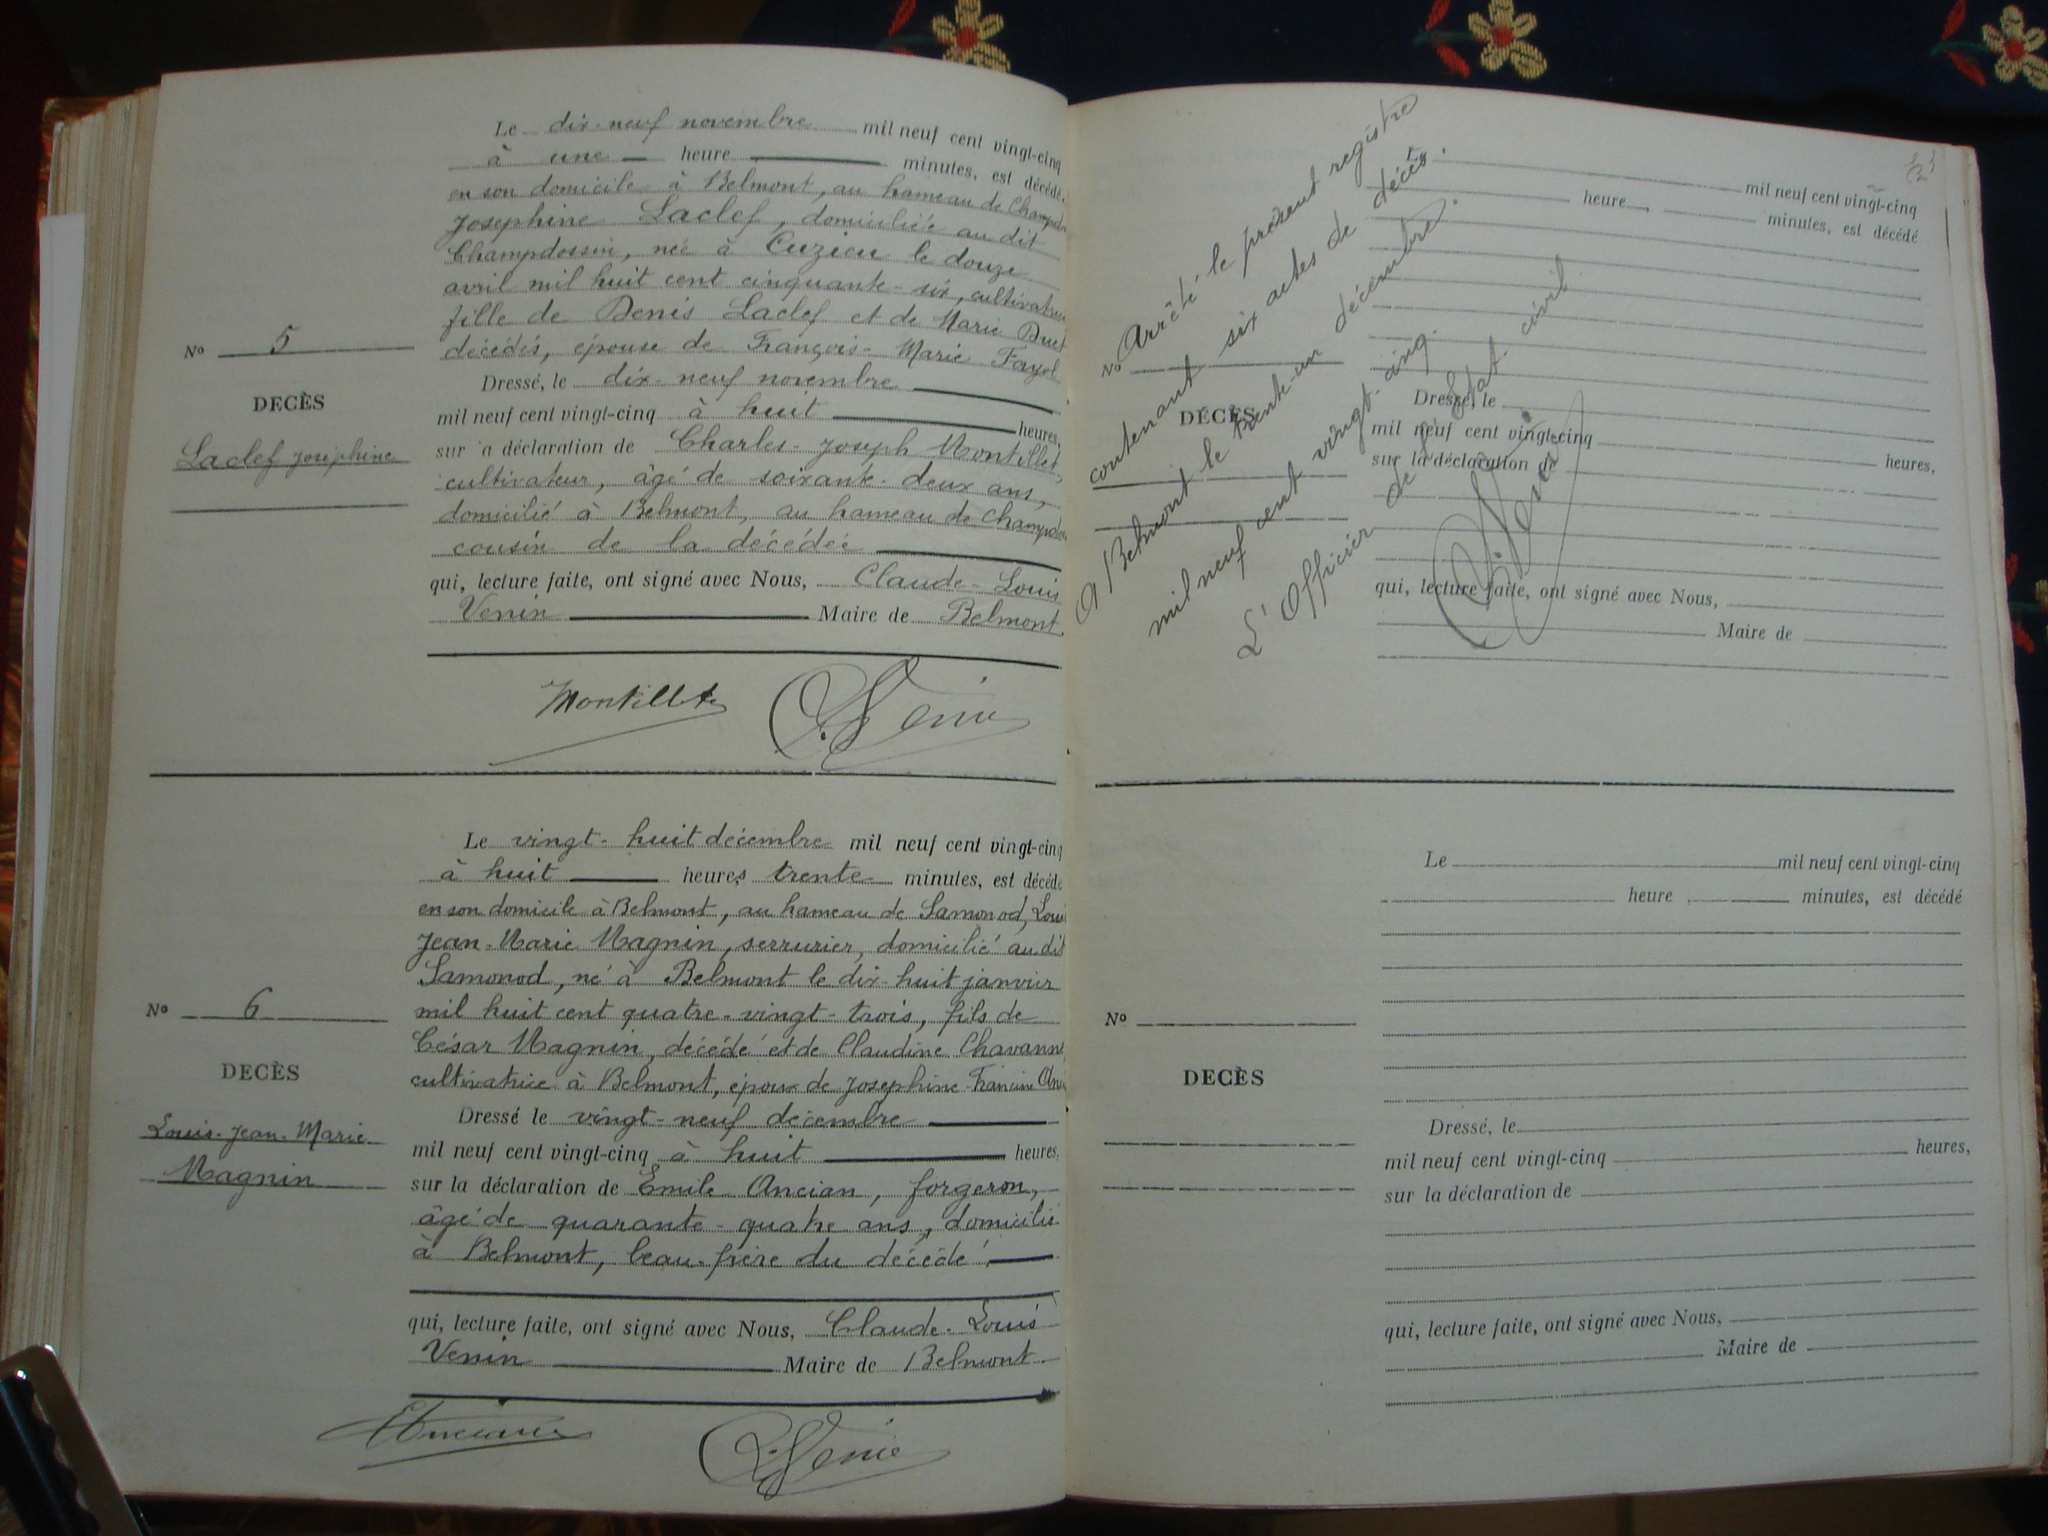 Le dix-neuf novembre mil neuf cent vingt-cinq
à une heure minutes, est décédé
en son domicile à Belmont, au hameau de
Josephine Laclef, domiciliée au dit
Champdossin, née à Cuzieu le douze
avril mil huit cent cinquante-six,
fille de Denis Laclef et de Marie
décédés, épouse de François-Marie Fayol
No 5
DECÈS
Laclef Josephine
Dressé, le dix-neuf novembre
mil neuf cent vingt-cinq à huit heures,
sur a déclaration de Charles-Joseph Montillet,
cultivateur, âgé de soixante-deux ans,
domicilié à Belmont, au hameau de
cousin de la décédée
qui, lecture faite, ont signé avec Nous, Claude-Louis
Venin Maire de Belmont.
Montillet
Le vingt-huit décembre mil neuf cent vingt-cinq
à huit heures trente minutes, est décédé
en son domicile à Belmont, au hameau de Samonod,
Jean-Marie Magnin, serrurier, domicilié au dit
Samonod, né à Belmont le dix-huit janvier
mil huit cent quatre-vingt-trois, fils de
César Magnin, décédé et de Claudine
cultivatrice à Belmont, époux de Josephine-Francine
No 6
DECÈS
Louis-Jean-Marie
Magnin
Dressé le vingt-neuf décembre
mil neuf cent vingt-cinq à huit heures,
sur la déclaration de Emile Ancian, forgeron,
âgé de quarante-quatre ans, domicilié
à Belmont, beau-frère du décédé
qui, lecture faite, ont signé avec Nous, Claude-Louis
Venin Maire de Belmont
Arrêté le présent registre
contenant six actes de décès.
A Belmont le trente-un décembre
mil neuf cent vingt-cinq.
L'Officier de l'état civil
Le mil neuf cent vingt-cinq
heure minutes, est décédé
No
DÉCÈS
Dressé, le
mil neuf cent vingt-cinq heures,
sur la déclaration de
qui, lecture faite, ont signé avec Nous,
Maire de
Le mil neuf cent vingt-cinq
heure minutes, est décédé
No
DECÈS
Dressé, le
mil neuf cent vingt-cinq heures,
sur la déclaration de
qui, lecture faite, ont signé avec Nous,
Maire de